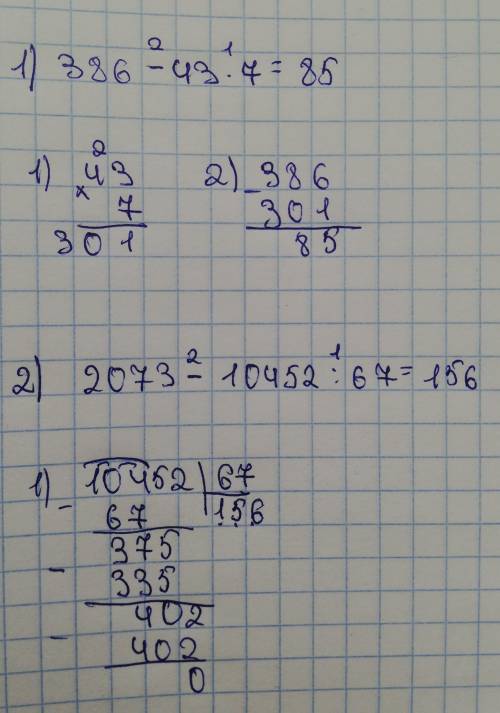 1) 386 - 43 · 7 = 85
2 1
1) 43 2) 386
2
× 7 - 301
301 85
2) 2073 - 10452 : 67 = 156
2 1
1) 10452 | 67
- 67 156
375
- 335
402
- 402
0